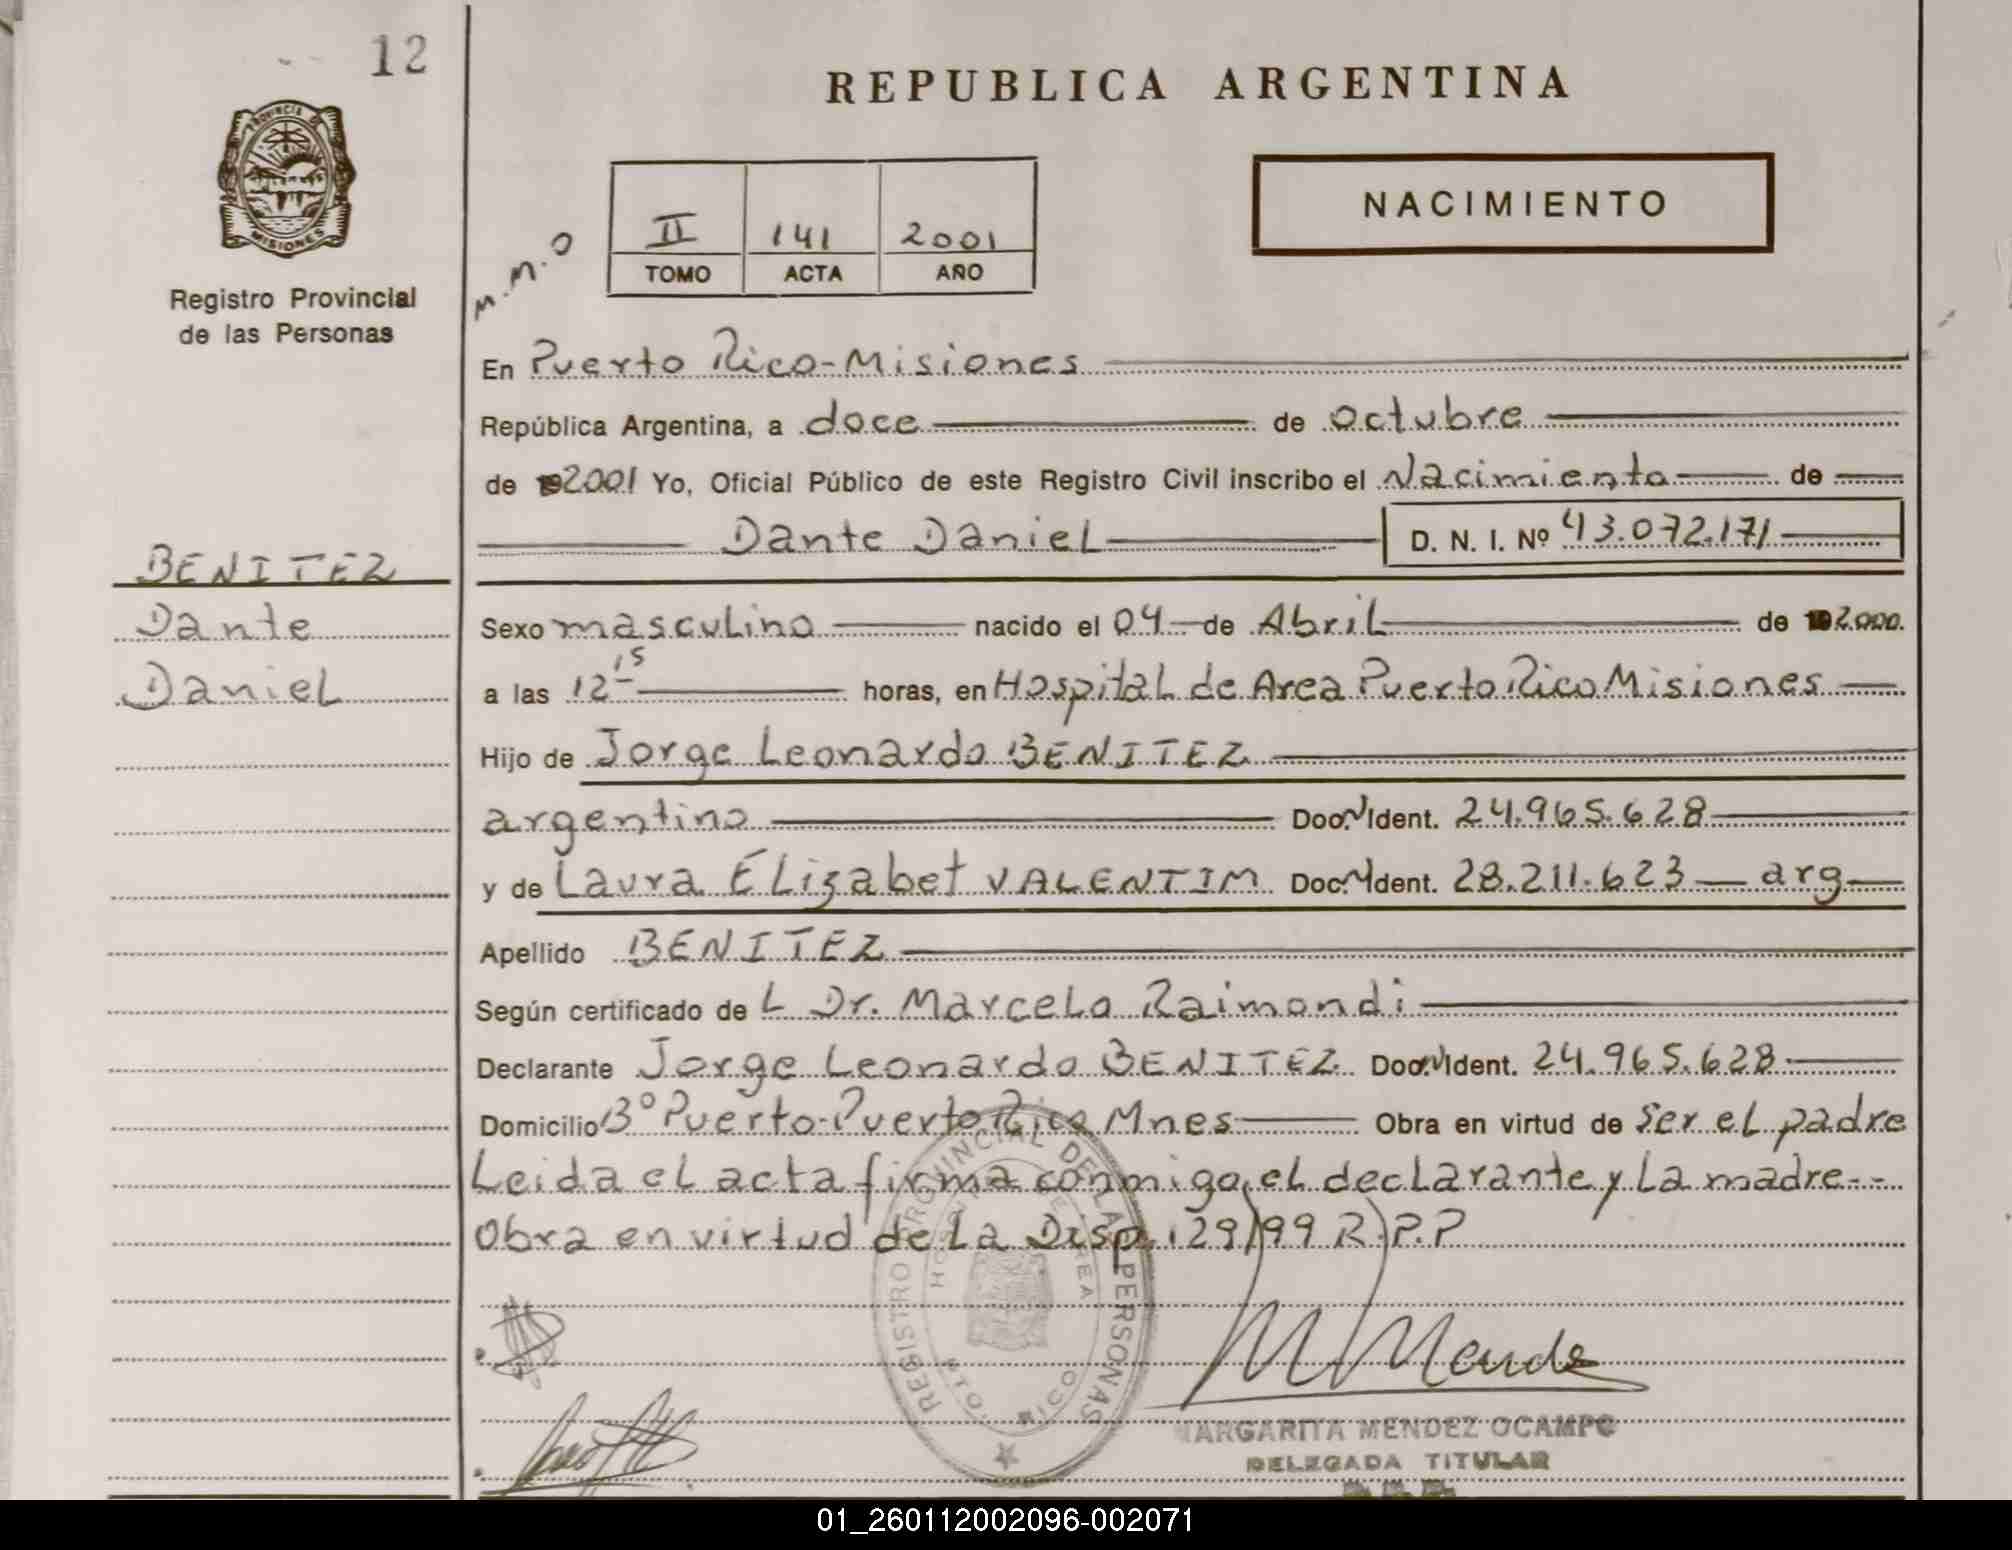 12
REPUBLICA ARGENTINA
PROVINCIA DE
MISIONES
NACIMIENTO
II 141 2001
TOMO ACTA AÑO
M.M.O
Registro Provincial
de las Personas
En Puerto Rico-Misiones
República Argentina, a doce de octubre
de 2001 Yo, Oficial Público de este Registro Civil inscribo el Nacimiento de
Dante Daniel D. N. I. Nº 43.072.171
BENITEZ
Dante
Daniel
Sexo masculino nacido el 04 de Abril de 2.000.
a las 12 15 horas, en Hospital de Area Puerto Rico Misiones
Hijo de Jorge Leonardo BENITEZ
argentino Doc. N Ident. 24.965.628
y de Laura Elizabet VALENTIM Doc. N Ident. 28.211.623 arg
Apellido BENITEZ
Según certificado de L Dr. Marcelo Raimondi
Declarante Jorge Leonardo BENITEZ Doc. N Ident. 24.965.628
Domicilio Bº Puerto-Puerto Rico Mnes Obra en virtud de ser el padre
Leida el acta firma conmigo, el declarante y la madre--
Obra en virtud de la Disp. 129/99 R.P.P
REGISTRO PROVINCIAL DE LAS PERSONAS
PTO. RICO
M Mende
MARGARITA MENDEZ OCAMPO
DELEGADA TITULAR
01_260112002096-002071